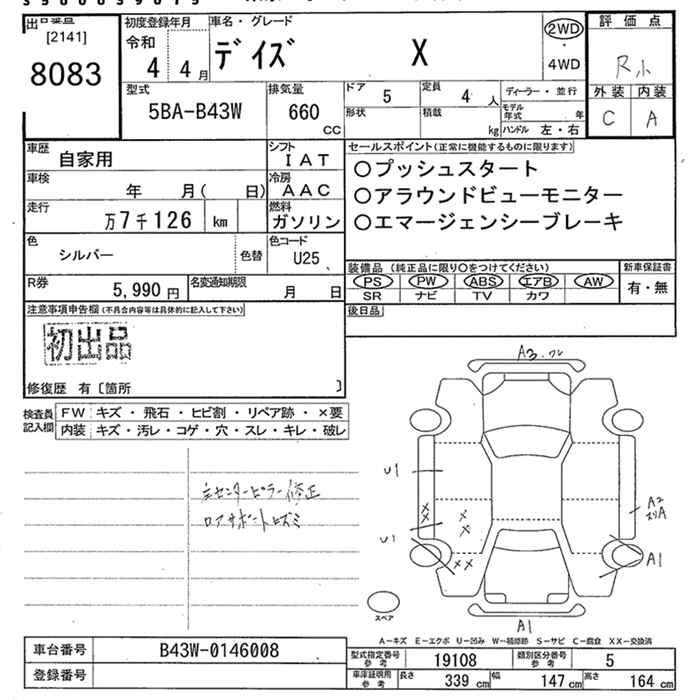 [2141]
8083
初度登録年月
令和
4 4月
車名・グレード
デイズ X
2WD
・
4WD
評価点
R小
外装 内装
C A
型式
5BA-B43W
排気量
660
CC
ドア 5
定員 4 人
形状
積載 kg
ディーラー・並行
モデル年式 年
ハンドル 左・右
車歴
自家用
シフト
IAT
車検
年 月( 日)
冷房
AAC
走行
万7千126 km
燃料
ガソリン
色
シルバー
色替
色コード
U25
R券
5,990 円
名変通知期限
月 日
セールスポイント(正常に機能するものに限ります)
○プッシュスタート
○アラウンドビューモニター
○エマージェンシーブレーキ
装備品 (純正品に限り○をつけてください)
新車保証書
PS PW ABS エアB AW
有・無
SR ナビ TV カワ
後日品
注意事項申告欄(不具合内容等は具体的に記入して下さい)
初出品
修復歴 有〔箇所 〕
検査員記入欄
FW キズ・飛石・ヒビ割・リペア跡・×要
内装 キズ・汚レ・コゲ・穴・スレ・キレ・破レ
主センターピラー修正
ロアサポートヒズミ
A3.ワレ
U1
U1
×
×
×
×
××
A2
スリA
A1
A1
スペア
A-キズ E-エクボ U-凹み W-補修跡 S-サビ C-腐食 XX-交換済
車台番号
B43W-0146008
登録番号
型式指定番号
参考
19108
類別区分番号
参考
5
車庫証明用
参考
長さ 339 cm
幅 147 cm
高さ 164 cm